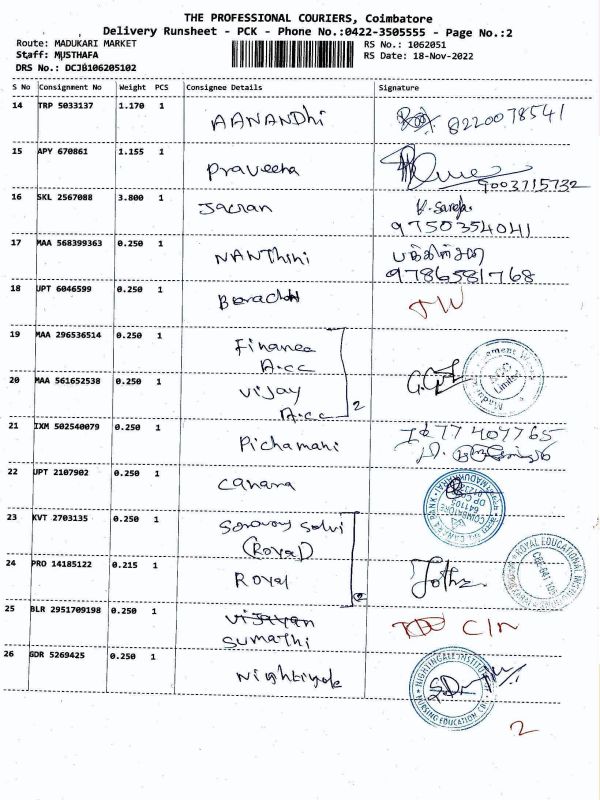 THE PROFESSIONAL COURIERS, Coimbatore
Delivery Runsheet - PCK - Phone No.:0422-3505555 - Page No.:2
Route: MADUKARI MARKET
RS No.: 1062051
Staff: MUSTHAFA
RS Date: 18-Nov-2022
DRS No.: DCJB106205102
S No Consignment No Weight PCS Consignee Details Signature
14 TRP 5033137 1.170 1 AANANDhi 8220078541
15 APY 670861 1.155 1 Praveena
9003715732
16 SKL 2567088 3.800 1
9750354041
17 MAA 568399363 0.250 1 NANThini
9786581768
18 UPT 6046599 0.250 1
19 MAA 296536514 0.250 1 Finance
A.cc
20 MAA 561652538 0.250 1 Vijay
A.cc 2
21 IXM 502540079 0.250 1 Pichamani
77 407765
22 UPT 2107902 0.250 1 Canara
23 KVT 2703135 0.250 1
(Royal)
24 PRO 14185122 0.215 1 Royal
25 BLR 2951709198 0.250 1 Vijayan
Sumathi
26 GDR 5269425 0.250 1
2